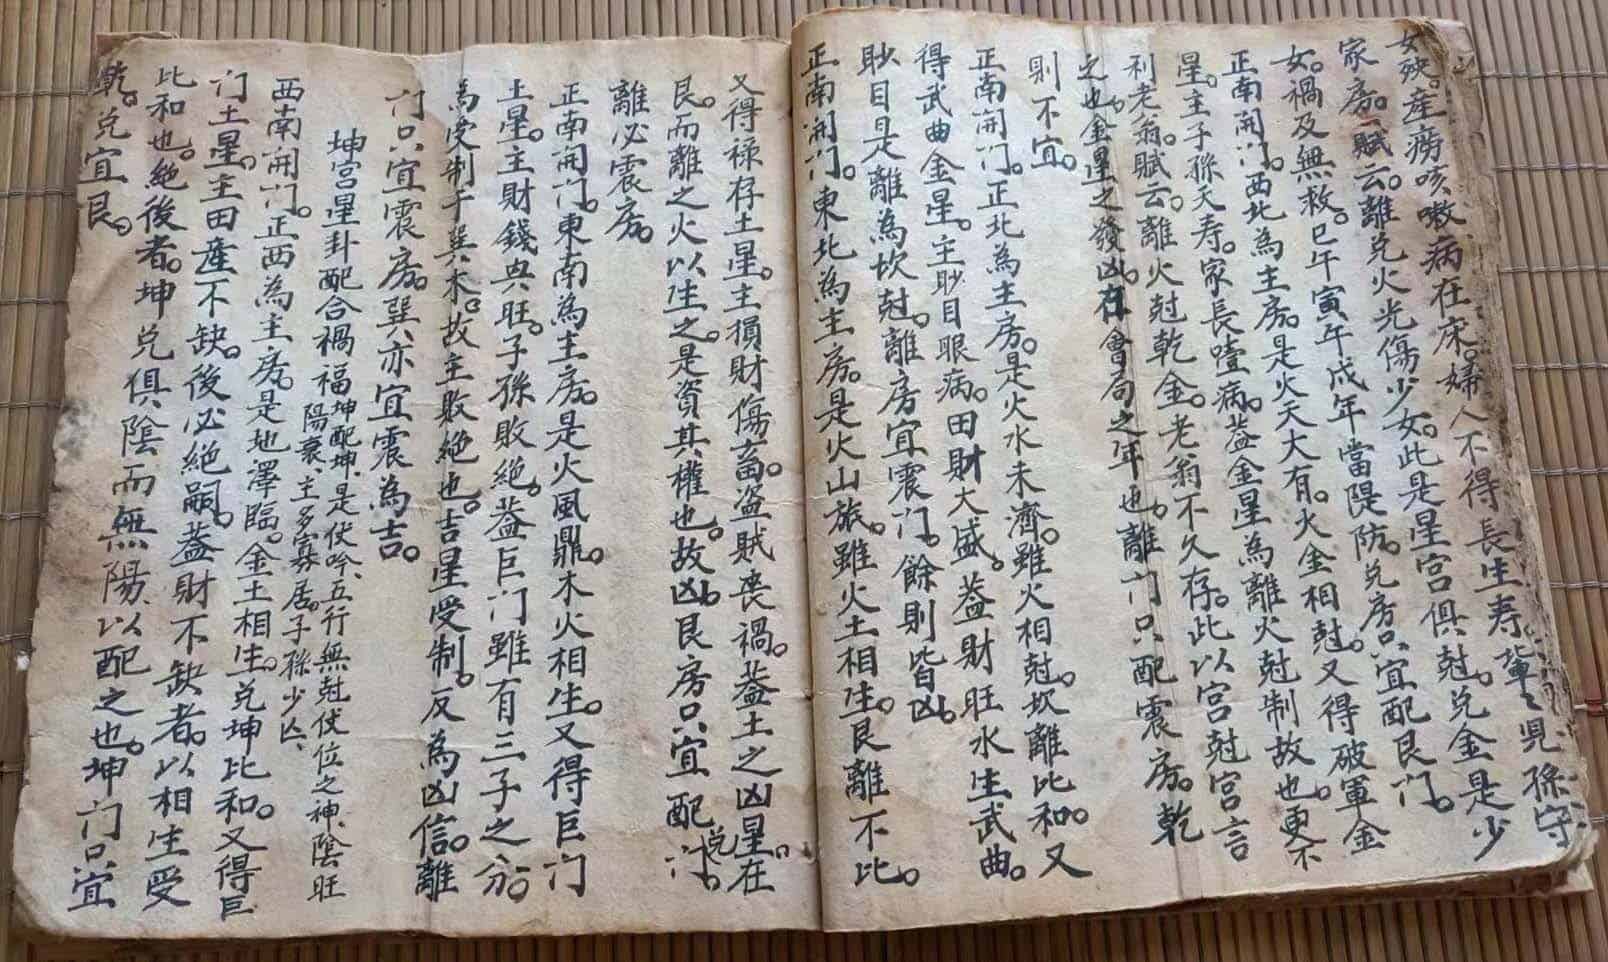 女殃。產癆咳嗽病在床。婦人不得長生寿。輩〻児孫守
家房。賦云。離兌火光傷少女。此是星宮俱尅。兌金是少
女。禍及無救。巳午寅午戌年當隄防。兌房只宜配艮门。
正南開门。西北為主房。是火天大有。火金相尅。又得破軍金
星。主子孫夭寿。家長噎病。葢金星為離火尅制故也。更不
利老翁。賦云。離火尅乾金。老翁不久存。此以宮尅宮言
之也。金星之發凶。在會局之年也。離门只配震房。乾
則不宜。
正南開门。正北為主房。是火水未濟。雖火相尅。坎離比和。又
得武曲金星。主眇目眼病。田財大盛。葢財旺水生武曲。
眇目是離為坎尅。離房宜震门。餘則皆凶。
正南開门。東北為主房。是火山旅。雖火土相生。艮離不比。
又得禄存土星。主損財傷畜。盗賊丧禍。葢土之凶星。在
艮。而離之火以生之。是資其權也。故凶。艮房只宜配兌门。
離必震房。
正南開门。東南為主房。是火風鼎。木火相生。又得巨门
土星。主財錢興旺。子孫敗絕。葢巨门雖有三子之分。
為受制于巽木。故主敗絕也。吉星受制。反為凶信。離
门只宜震房。巽亦宜震為吉。
坤宮星卦配合禍福 坤配坤、是伏吟、五行無尅伏位之神、陰旺
陽衰、主多寡居。子孫少凶、
西南開门。正西為主房。是地澤臨。金土相生。兌坤比和。又得巨
门土星。主田產不缺。後必絕嗣。葢財不缺者。以相生受
比和也。絕後者。坤兌俱陰而無陽、以配之也。坤门只宜
乾。兌宜艮。